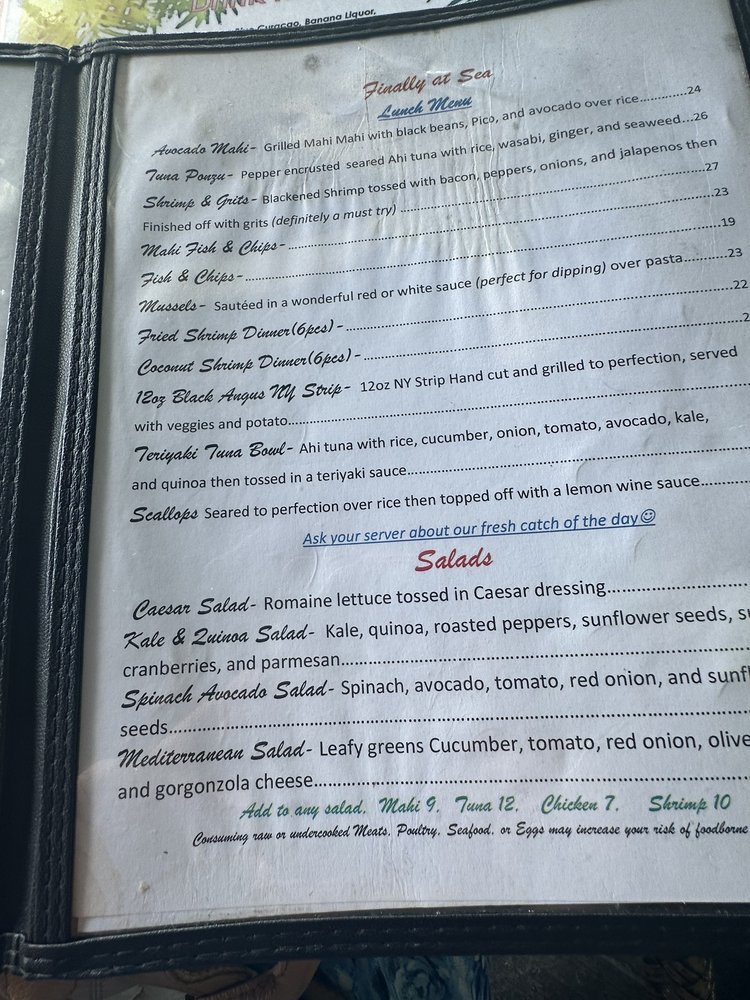 Curacao, Banana Liquor,
Finally at Sea
Lunch Menu
Avocado Mahi- Grilled Mahi Mahi with black beans, Pico, and avocado over rice............24
Tuna Ponzu- Pepper encrusted seared Ahi tuna with rice, wasabi, ginger, and seaweed...26
Shrimp & Grits- Blackened Shrimp tossed with bacon, peppers, onions, and jalapenos then
Finished off with grits (definitely a must try) ............27
Mahi Fish & Chips-............23
Fish & Chips-............19
Mussels- Sautéed in a wonderful red or white sauce (perfect for dipping) over pasta...........23
Fried Shrimp Dinner(6pcs)-............22
Coconut Shrimp Dinner(6pcs)-............2
12oz Black Angus NY Strip- 12oz NY Strip Hand cut and grilled to perfection, served
with veggies and potato............
Teriyaki Tuna Bowl- Ahi tuna with rice, cucumber, onion, tomato, avocado, kale,
and quinoa then tossed in a teriyaki sauce............
Scallops Seared to perfection over rice then topped off with a lemon wine sauce............
Ask your server about our fresh catch of the day☺
Salads
Caesar Salad- Romaine lettuce tossed in Caesar dressing............
Kale & Quinoa Salad- Kale, quinoa, roasted peppers, sunflower seeds,
cranberries, and parmesan............
Spinach Avocado Salad- Spinach, avocado, tomato, red onion, and sunfl
seeds............
Mediterranean Salad- Leafy greens Cucumber, tomato, red onion, olive
and gorgonzola cheese............
Add to any salad. Mahi 9. Tuna 12. Chicken 7. Shrimp 10
Consuming raw or undercooked Meats, Poultry, Seafood, or Eggs may increase your risk of foodborne